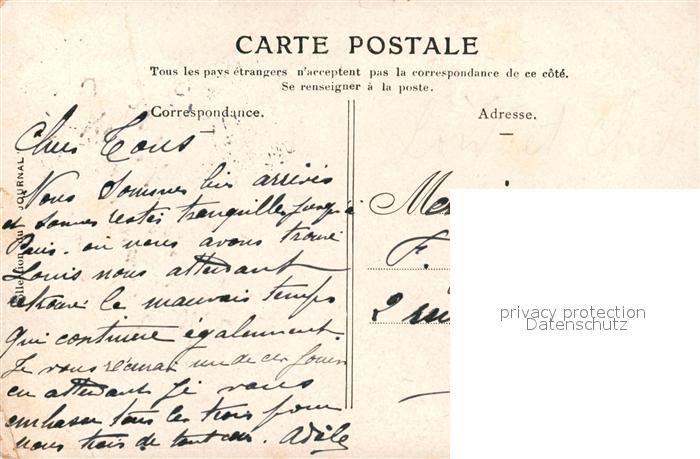 CARTE POSTALE
Tous les pays étrangers n'acceptent pas la correspondance de ce côté.
Se renseigner à la poste.
Correspondance.
Adresse.
Chers Tous
Nous sommes bien arrivés
et sommes restés tranquilles jusqu'à
Paris. où nous avons trouvé
Louis nous attendant
retrouvé le mauvais temps
qui continue également.
Je vous écrirai un de ces jours
en attendant je vous
embrasse tous les trois pour
nous trois de tout cœur. Adèle
Collection du JOURNAL
F.
2
privacy protection
Datenschutz